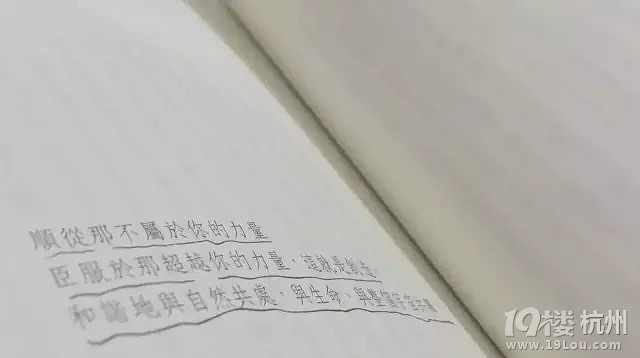 順從那不屬於你的力量
臣服於那超越你的力量，這就是
和諧地與自然共處，與生命、與整個
19楼 杭州
www.19Lou.com